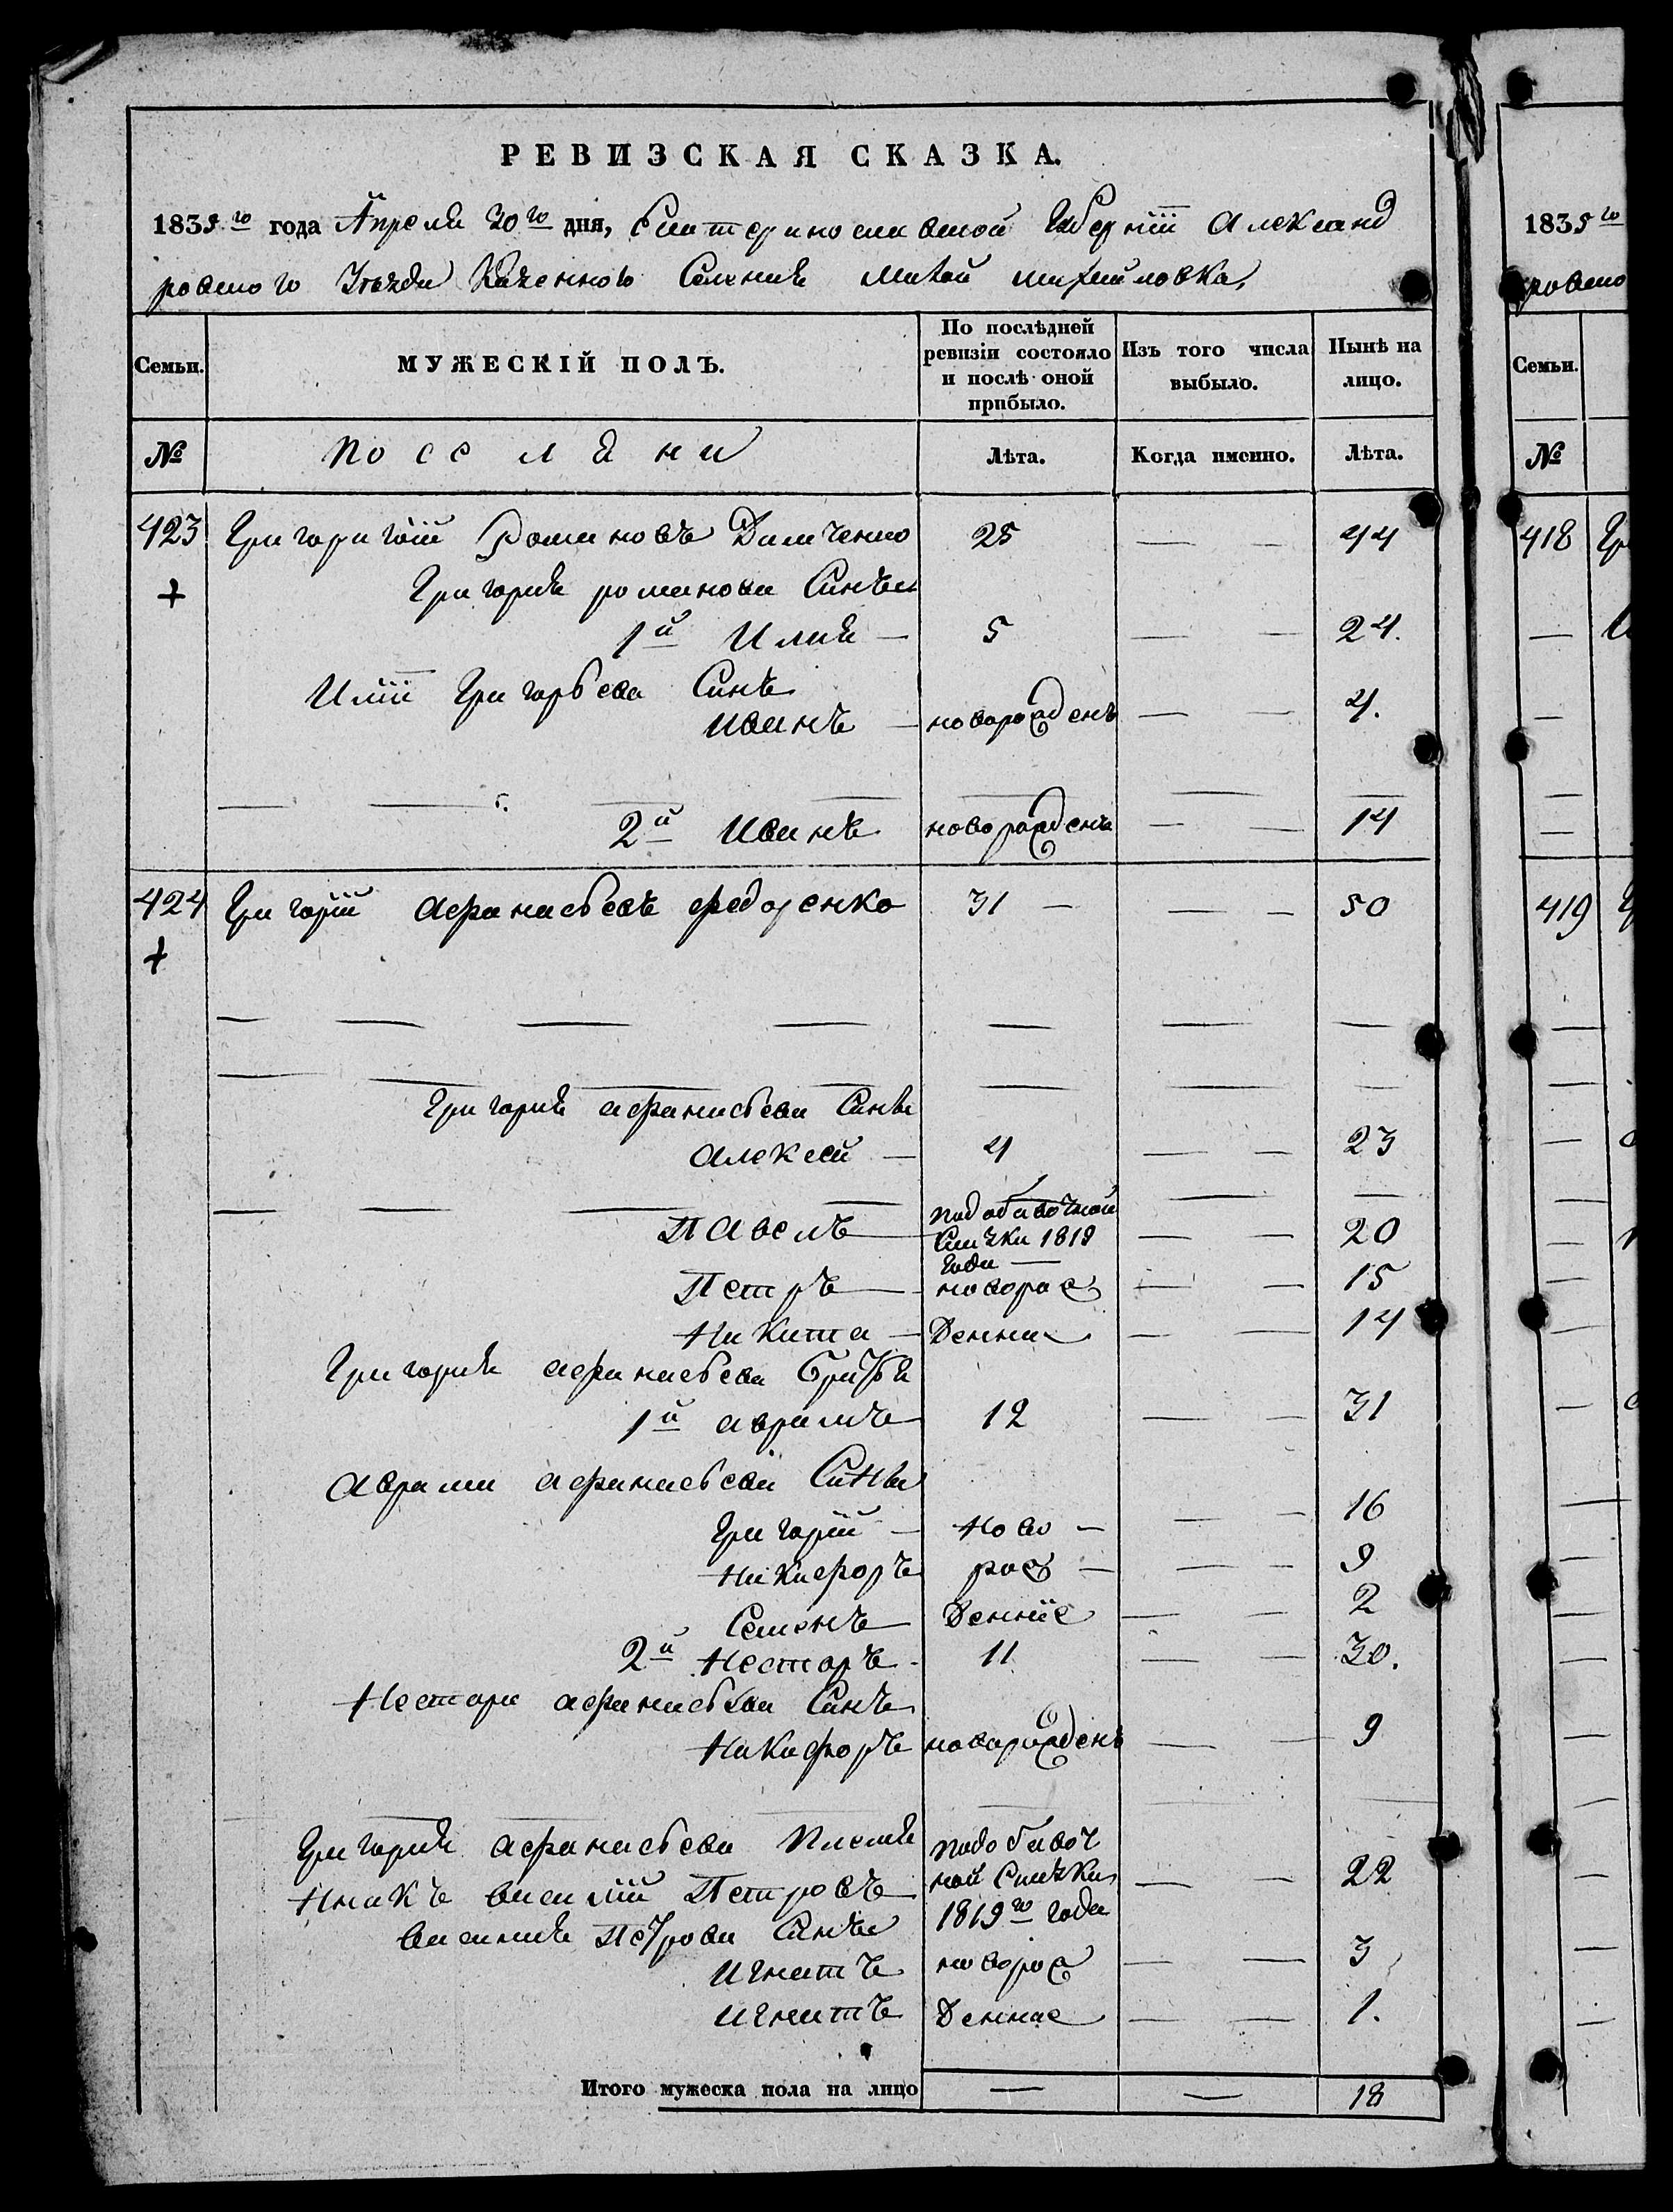 РЕВИЗСКАЯ СКАЗКА.
1835го года Апреля 30го дня, Екатеринославской Губерніи Александ
ровского Уѣзда Казенного Селения Малой михайловка,
Семьи.
МУЖЕСКІЙ ПОЛЪ.
По послѣдней ревизіи состояло и послѣ оной прибыло.
Изъ того числа выбыло.
Нынѣ на лицо.
№ поселяни Лѣта. Когда именно. Лѣта.
423 Григоригой Романовъ 25 — — 44
+ Григория романова Синъи
1й Илия — 5 — — 24.
Иліи Григорьева Синъ
Иванъ — новорожденъ — — 4.
2й Иванъ новорожденъ — — 14
424 Григорій Афанасьевъ федоренко 31 — — — 50
+
Григория афанасьева Сины
Алексей — 4 — — 23
Павелъ — под обавочной Сказки 1819 года — — — 20
Петръ — новорож — — 15
Никита — Денни — — 14
Григория афанасьева братья
1й аврамъ 12 — — 31
Аврама афанасьева Сины
Григорій — Ново — — — 16
Никифоръ рож — — — 9
Семенъ Денніе — — 2
2й Несторъ — 11 — — 30.
Нестора афанасьева Синъ
Никифоръ новорожденъ — — 9
Григория афанасьева племя
нникъ василій Петровъ подобавоч ной Сказки 1819го года — — 22
василия Петрова Синъи
Игнатъ новорож — — 3
Игнатъ Денние — — 1.
Итого мужеска пола на лицо — — 18
1835го
ровско
Семьи.
№
418 Гр
419